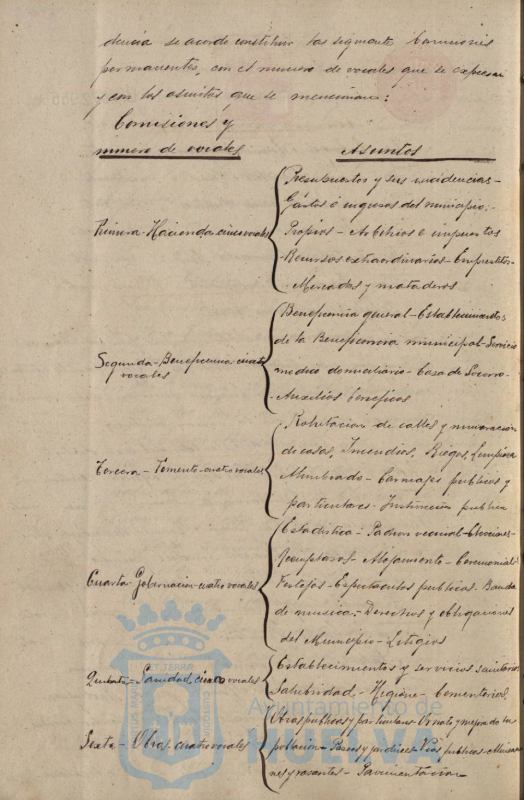 dencia se acordó constituir las siguientes Comisiones
permanentes, con el numero de vocales que se expresan
y con los asuntos que se mencionan:
Comisiones y
numero de vocales
Asuntos
Primera - Hacienda cinco vocales
Presupuestos y sus incidencias -
Gastos é ingresos del municipio:-
Propios - Arbitrios é impuestos
- Recursos extraordinarios - Empréstitos -
- Mercados y mataderos
Segunda - Beneficencia - cuatro
y vocales
Beneficencia general - Establecimientos
de la Beneficencia municipal - Servicio
medico domiciliario - Casa de Socorro -
- Auxilios beneficos
Tercera - Fomento - cuatro vocales
Rotulacion de calles y numeración
de casas, Incendios, Riegos, Limpieza
Alumbrado - Carruajes publicos y
particulares - Instrucción publica
Cuarta Gobernación - cuatro vocales
Estadistica: Padron vecinal - Elecciones -
Reemplazos - Alojamiento - Ceremonial -
Festejos - Espectaculos publicos. Banda
de musica. - Derechos y obligaciones
del Municipio - Litigios
Quinta - Sanidad, cuatro vocales
Establecimientos y servicios sanitarios
Salubridad - Higiene - Cementerios
Sexta - Obras, cuatro vocales
Obras publicas y particulares - Ornato y mejora de la
población - Paseos y jardines - Vias publicas -
nes y rasantes - Pavimentacion
Ayuntamiento de
HUELVA